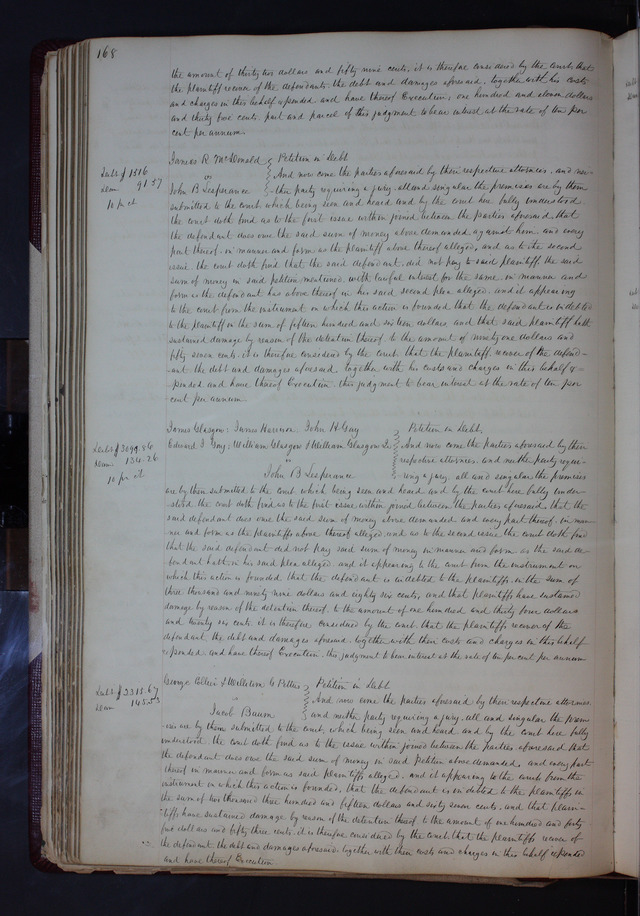 168
the amount of thirty two dollars and fifty nine cents, it is therefore considered by the court that
the plaintiff recover of the defendants the debt and damages aforesaid, together with his costs
and charges in this behalf expended and have thereof Execution, one hundred and eleven dollars
and thirty five cents part and parcel of this judgment to bear interest at the rate of ten per
cent per annum.
James R McDonald } Petition in Debt
Debt $1516
vs } And now come the parties aforesaid by their respective attornies, and nei-
Dam. 91.57
John B Lesperance } ther party requiring a jury, all and singular the premises are by them
10 pr ct
submitted to the court which being seen and heard and by the court here fully understood
the court doth find as to the first issue within joined between the parties aforesaid, that
the defendant does owe the said sum of money above demanded against him, and every
part thereof, in manner and form as the plaintiff above thereof alleged, and as to the second
issue the court doth find that the said defendant, did not pay to said plaintiff the said
sum of money in said petition mentioned with lawful interest for the same in manner and
form as the defendant has above thereof in his said second plea alleged, and it appearing
to the court from the instrument on which this action is founded that the defendant is indebted
to the plaintiff in the sum of fifteen hundred and sixteen dollars and that said plaintiff hath
sustained damage by reason of the detention thereof to the amount of ninety one dollars and
fifty seven cents, it is therefore considered by the court that the plaintiff recover of the defend-
ant the debt and damages aforesaid, together with his costs and charges in this behalf ex-
pended and have thereof Execution this judgment to bear interest at the rate of ten per
cent per annum.
James Glasgow, James Harrison, John H Gay } Petition in Debt,
Debt $3099.86
Edward J Gay, William Glasgow & William Glasgow Jr } And now come the parties aforesaid by their
Dam. 134.26
vs } respective attornies, and neither party requi-
10 pr ct
John B Lesperance } ring a jury, all and singular the premises
are by them submitted to the court which being seen and heard and by the court here fully under-
stood the court doth find as to the first issue within joined between the parties aforesaid, that the
said defendant does owe the said sum of money above demanded and every part thereof, in man-
ner and form as the plaintiffs above thereof alleged, and as to the second issue the court doth find
that the said defendant did not pay said sum of money in manner and form as the said de-
fendant hath in his said plea alleged, and it appearing to the court from the instrument on
which this action is founded that the defendant is indebted to the plaintiffs in the sum of
three thousand and ninety nine dollars and eighty six cents, and that plaintiffs have sustained
damage by reason of the detention thereof to the amount of one hundred and thirty four dollars
and twenty six cents it is therefore considered by the court that the plaintiffs recover of the
defendant the debt and damages aforesaid, together with their costs and charges in this behalf
expended and have thereof Execution, this judgment to bear interest at the rate of ten per cent per annum
George Collier & Willston G Pettus } Petition in Debt
Debt $2315.67
vs } And now come the parties aforesaid by their respective attornies,
Dam 145.53
Jacob Baum } and neither party requiring a jury, all and singular the prem-
ises are by them submitted to the court, which being seen and heard, and by the court here fully
understood, the court doth find as to the issue within joined between the parties aforesaid that
the defendant does owe the said sum of money in said Petition above demanded, and every part
thereof in manner and form as said plaintiffs alleged, and it appearing to the court from the
instrument on which this action is founded, that the defendant is indebted to the plaintiffs in
the sum of two thousand three hundred and fifteen dollars and sixty seven cents, and that plain-
tiffs have sustained damage by reason of the detention thereof to the amount of one hundred and forty
five dollars and fifty three cents, it is therefore considered by the court that the plaintiffs recover of
the defendant the debt and damages aforesaid, together with their costs and charges in this behalf expended
and have thereof Execution